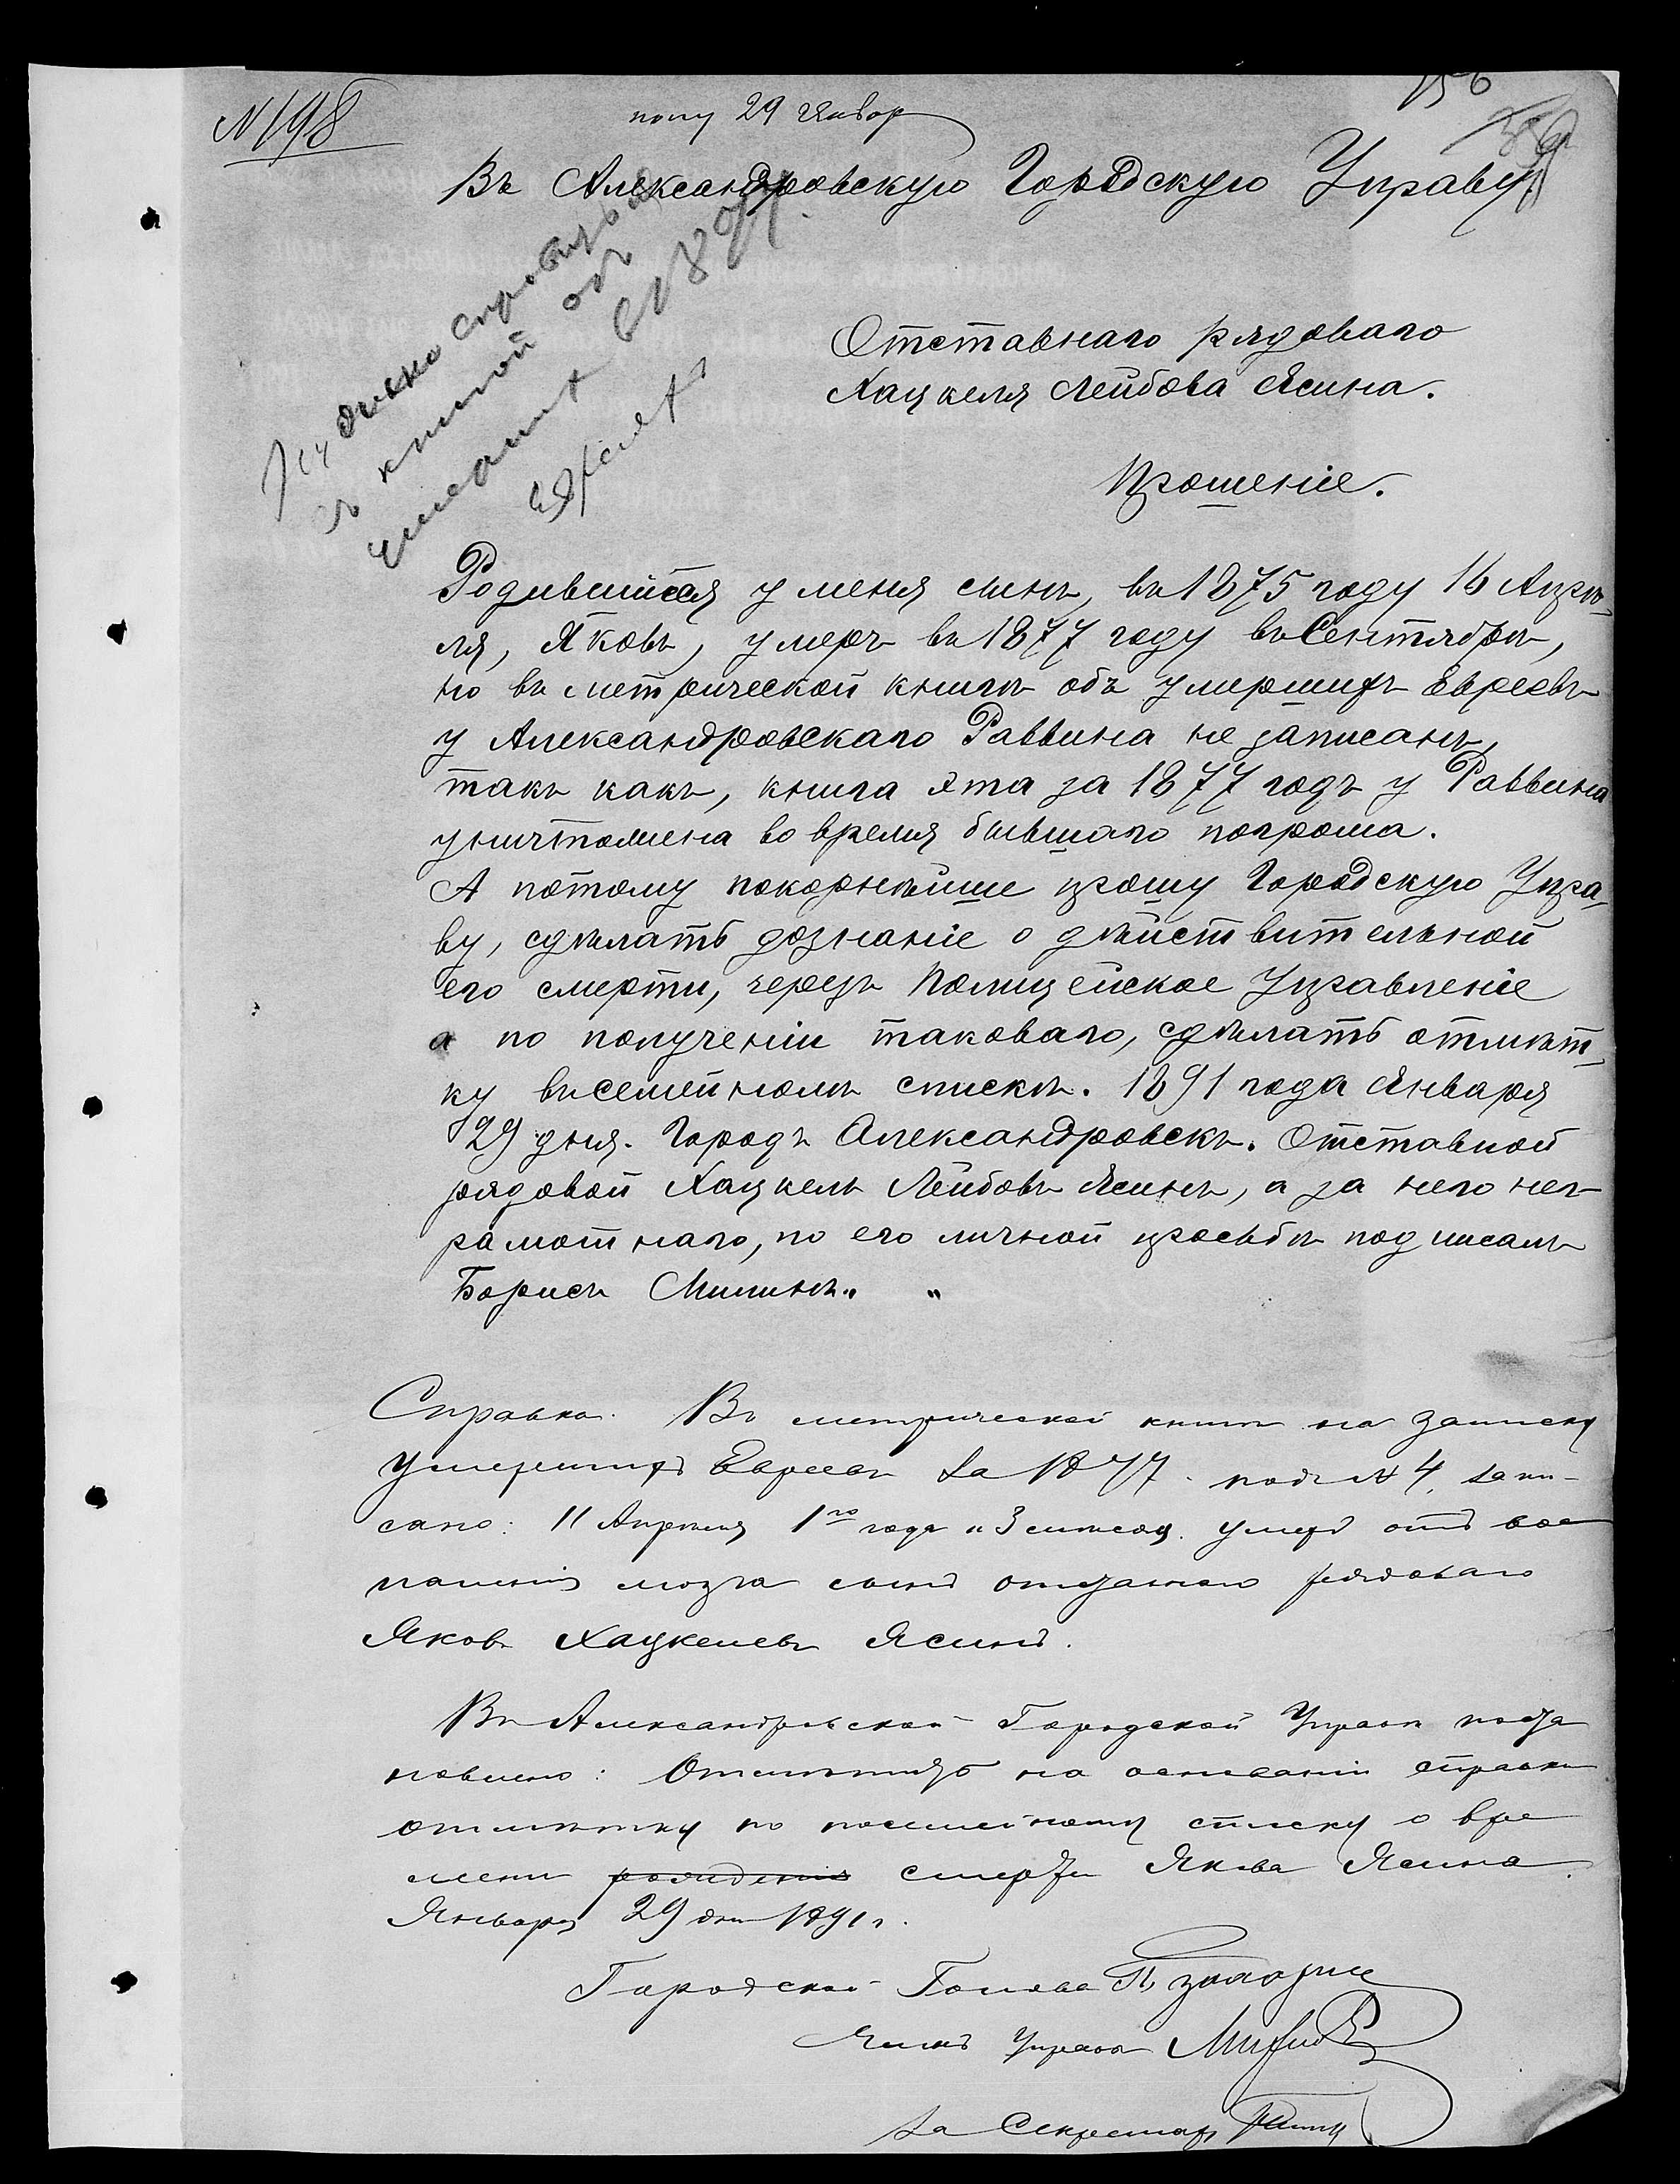 N 198
полу 29 Январ
156
Въ Александровскую Городскую Управу
справиться
съ книгой объ
Отставнаго рядоваго
Хацкеля Лейбова Ясина.
Прошеніе.
Родившійся у меня сынъ, въ 1875 году 16 Апрѣ-
ля, Яковъ, умеръ въ 1877 году въ Сентябрѣ,
но въ метрической книгѣ объ умершихъ Евреевъ
у Александровскаго Раввина не записанъ,
такъ какъ, книга эта за 1877 годъ у Раввина
уничтожена во время бывшаго погрома.
А потому покорнѣйше прошу Городскую Упра-
ву, сдѣлать дознаніе о дѣйствительной
его смерти, черезъ Полицейское Управленіе
а по полученіи таковаго, сдѣлать отмѣт-
ку въ семейномъ спискѣ. 1891 года Января
29 дня. Городъ Александровскъ. Отставной
рядовой Хацкель Лейбовъ Ясинъ, а за него нег-
рамотнаго, по его личной просьбѣ подписалъ
Борисъ Милинъ. "
Справка. Въ метрической книгѣ на записку
умершихъ Евреевъ за 1877 подъ № 4, запи-
сано: 11 Апрѣля 1го года 3 мѣсяц. умеръ отъ вос
паленія мозга сынъ отставнаго рядоваго
Яковъ Хацкелевъ Ясинъ.
Въ Александровской Городской Управѣ поста
новлено: на основаніи справки
отмѣтку по посемейному списку о вре
мени рожденія смерти Якова Ясина.
Января 29 дня 1891 г.
Городской Голова
Членъ Управы
За Секретаря